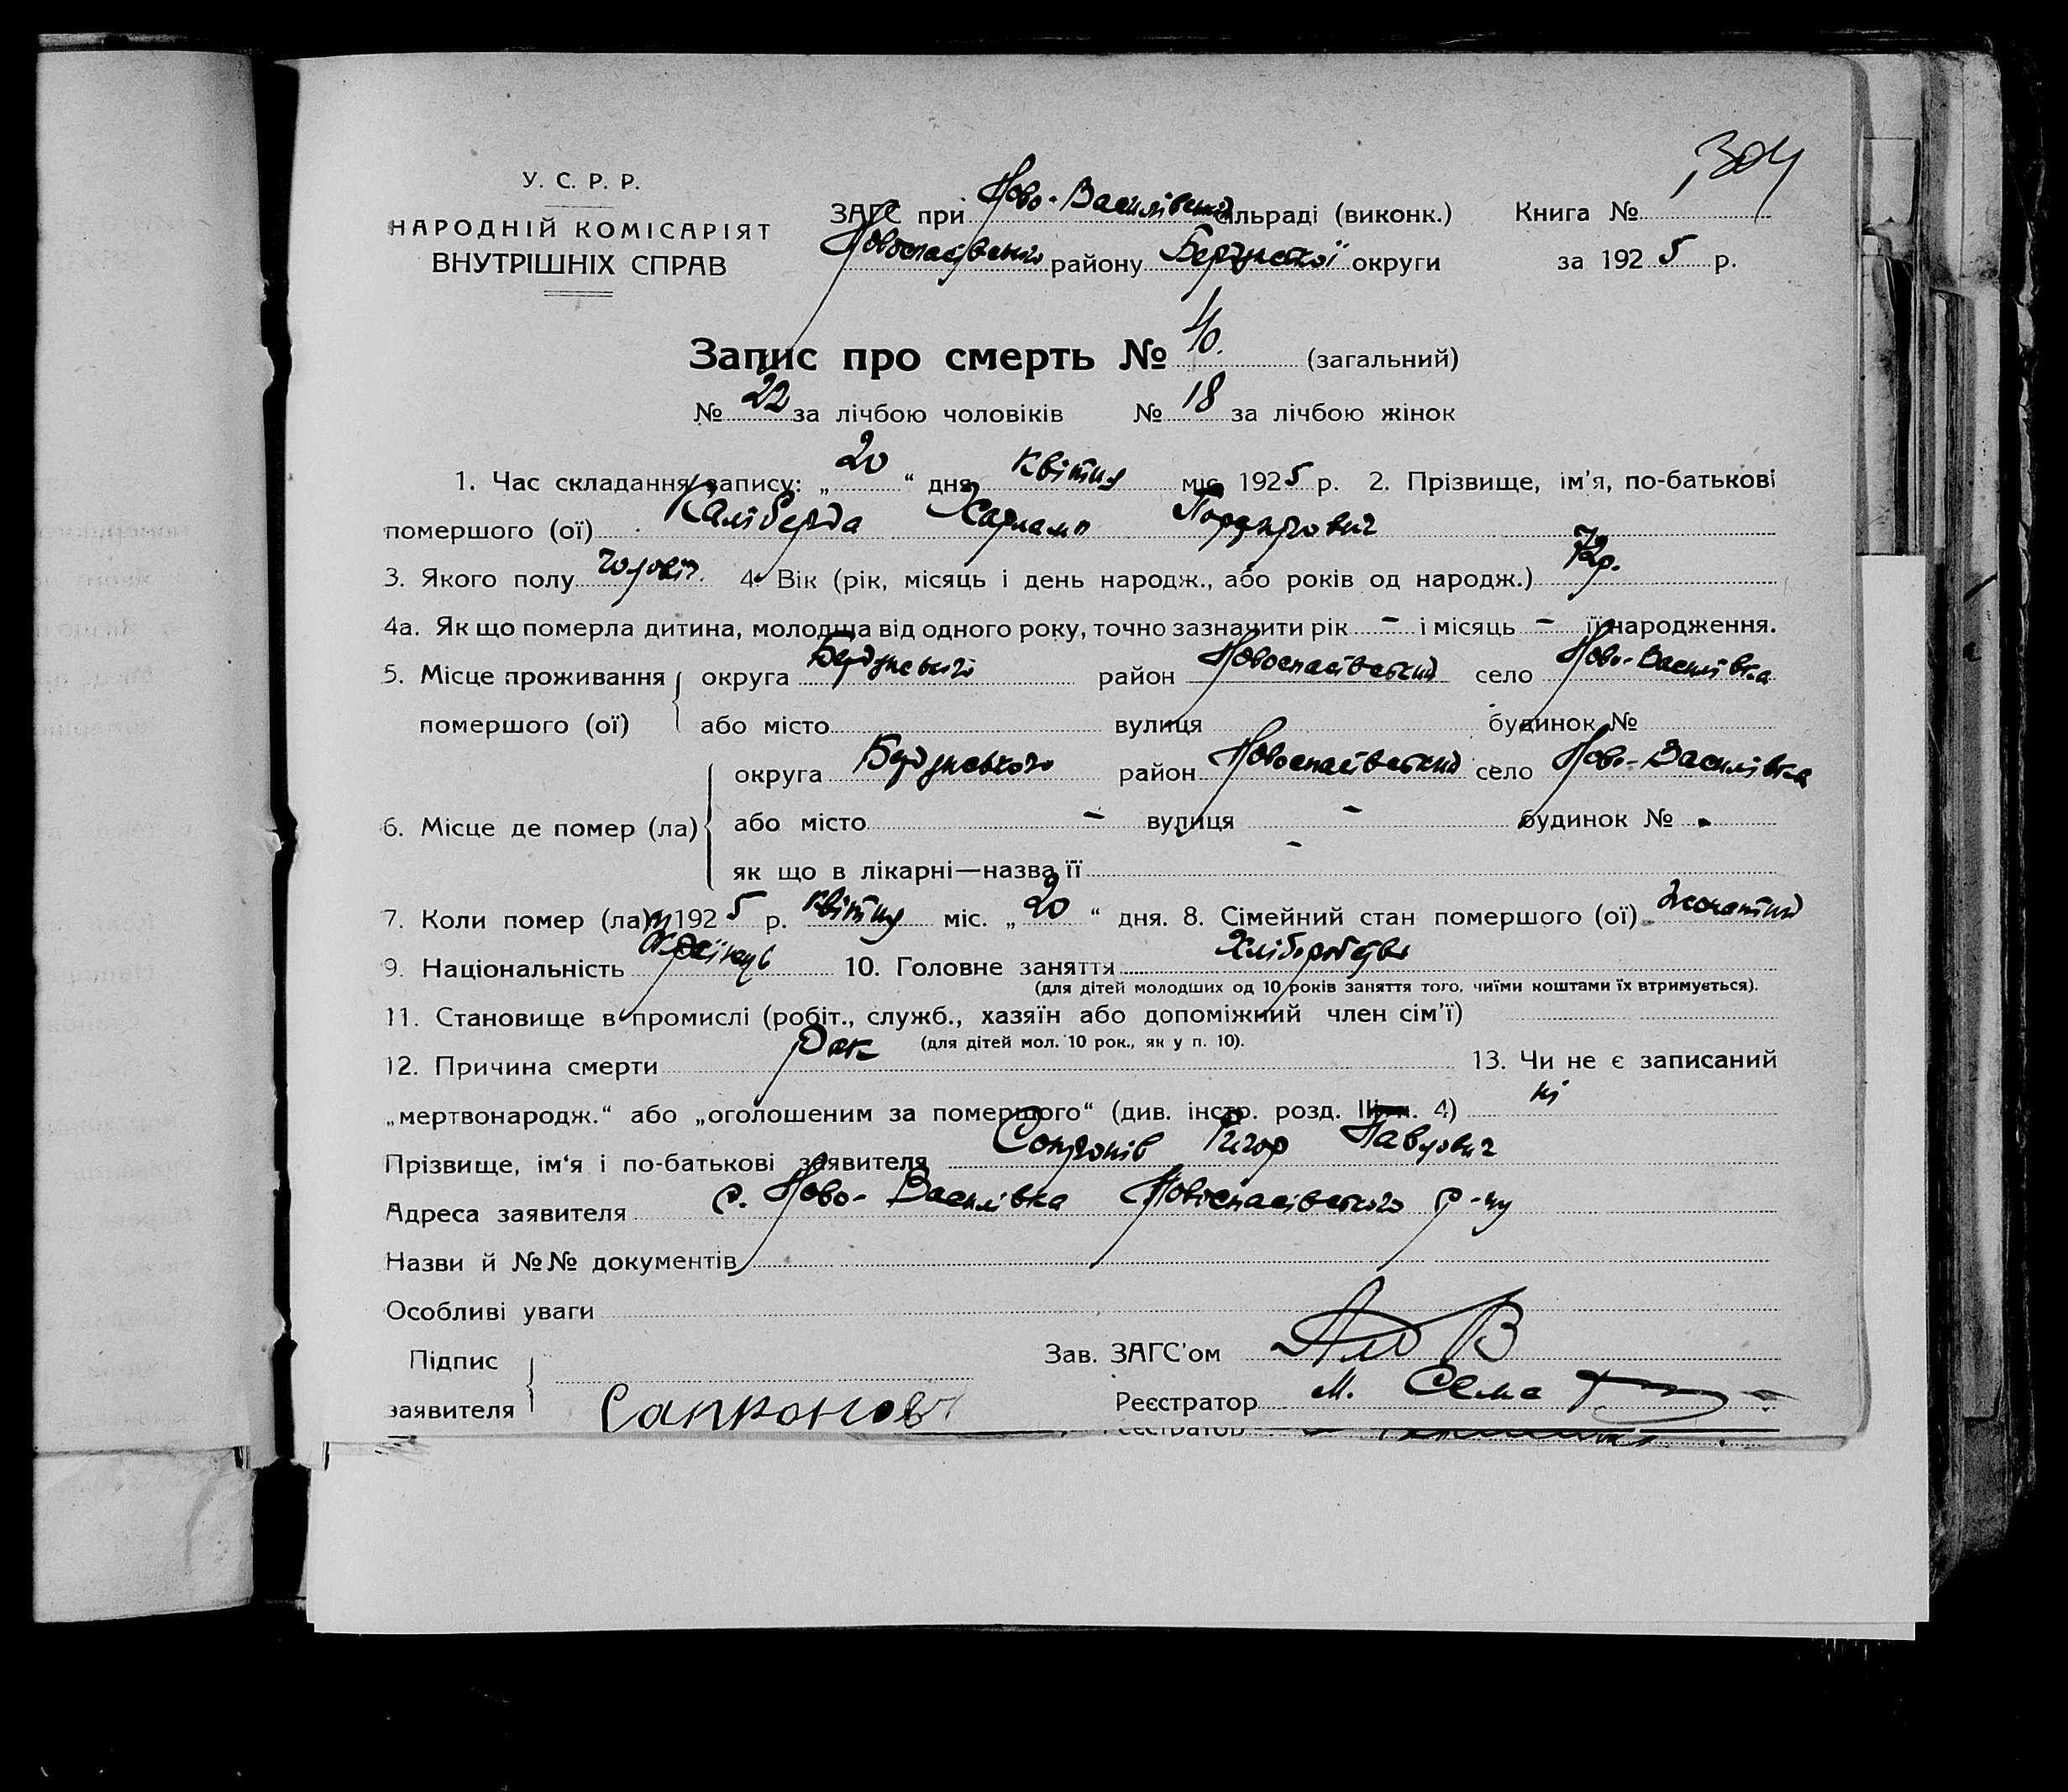 304
У. С. Р. Р.
НАРОДНІЙ КОМІСАРІЯТ
ВНУТРІШНІХ СПРАВ
ЗАГС при Ново-Василівській сільраді (виконк.) Книга №
району Бердянської округи за 1925 р.
Запис про смерть № 40. (загальний)
№ 22 за лічбою чоловіків № 18 за лічбою жінок
1. Час складання запису: „20“ дня квітня міс. 1925 р. 2. Прізвище, ім'я, по-батькові
помершого (ої) Каліберда Харламп Порфирович
3. Якого полу чоловіч. 4. Вік (рік, місяць і день народж., або років од народж.) 72р.
4а. Як що померла дитина, молодша від одного року, точно зазначити рік - і місяць - її народження.
5. Місце проживання округа район Новоспасівський село Ново-Василівка
помершого (ої) або місто вулиця будинок №
округа Бердянського район Новоспасівський село Ново-Василівка
6. Місце де помер (ла) або місто - вулиця - будинок № -
як що в лікарні—назва її -
7. Коли помер (ла) 1925 р. квітня міс. „20“ дня. 8. Сімейний стан помершого (ої) жонатий
9. Національність Українець 10. Головне заняття Хліборобство
(для дітей молодших од 10 років заняття того, чиїми коштами їх втримується).
11. Становище в промислі (робіт., служб., хазяїн або допоміжний член сім'ї)
(для дітей мол. 10 рок., як у п. 10).
12. Причина смерти Рак 13. Чи не є записаний
„мертвонародж.“ або „оголошеним за помершого“ (див. інстр. розд. III п. 4) ні
Прізвище, ім'я і по-батькові заявителя Григор Павлович
Адреса заявителя с. Ново-Василівка Новоспасівського р-ну
Назви й №№ документів
Особливі уваги
Підпис
Зав. ЗАГС'ом
заявителя
Реєстратор М.
Реєстратор